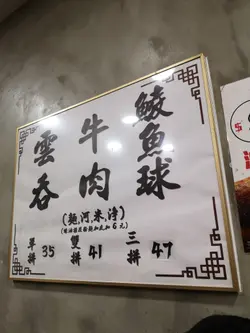 鯪魚球
牛肉
雲吞
(麵,河,米,淨)
單拼 35
雙拼 41
三拼 47